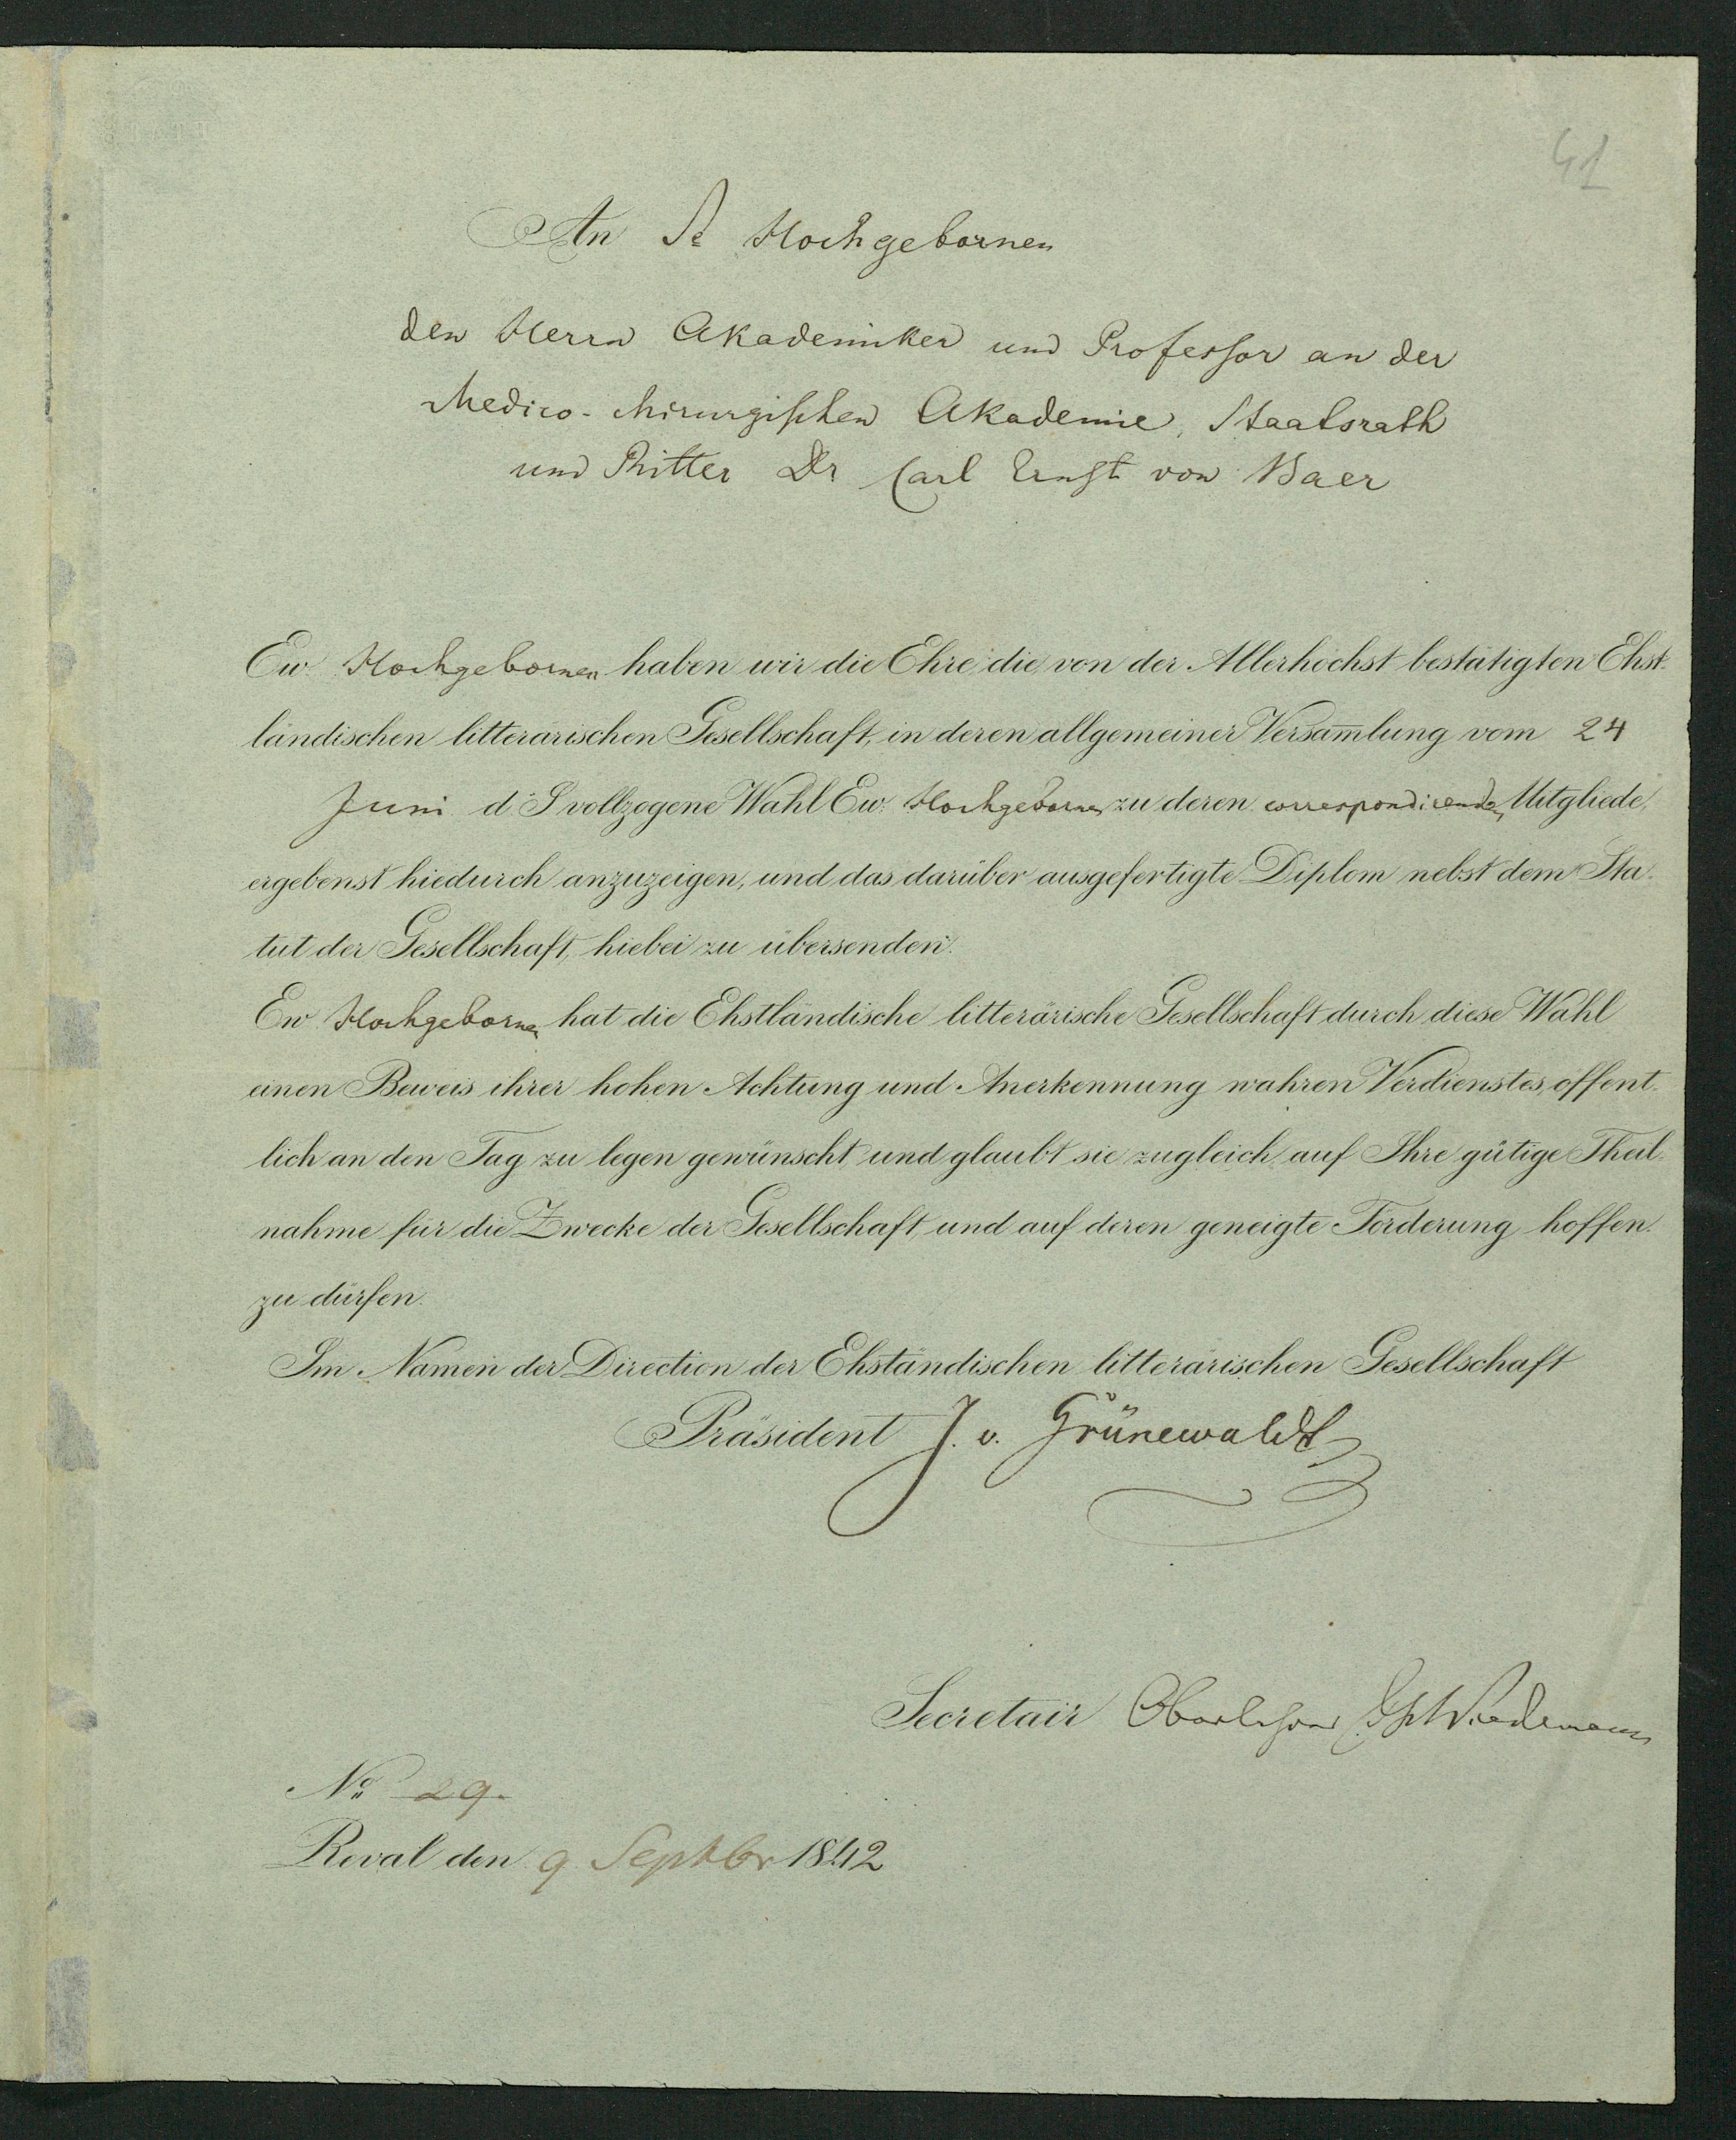 41
An Se Hochgebornen
den Herrn Akademiker und Professor an der
Medico-chirurgischen Akademie, Staatsrath
und Ritter Dr Carl Ernst von Baer
Ew. Hochgebornen haben wir die Ehre, die von der Allerhöchst bestätigten Ehst-
ländischen litterärischen Gesellschaft, in deren allgemeiner Versam̅lung vom 24
Juni d. J. vollzogene Wahl Ew. Hochgebornen zu deren correspondirenden Mitgliede,
ergebenst hiedurch anzuzeigen, und das darüber ausgefertigte Diplom nebst dem Sta-
tut der Gesellschaft, hiebei zu übersenden.
Ew. Hochgebornen hat die Ehstländische litterärische Gesellschaft durch diese Wahl
einen Beweis ihrer hohen Achtung und Anerkennung wahren Verdienstes, öffent-
lich an den Tag zu legen gewünscht, und glaubt sie zugleich, auf Ihre gütige Theil-
nahme für die Zwecke der Gesellschaft, und auf deren geneigte Förderung hoffen
zu dürfen.
Im Namen der Direction der Ehständischen litterärischen Gesellschaft
Präsident J. v. Grünewaldt
Secretair Oberlehrer Wiedemann
No 29.
Reval den 9 Septbr 1842